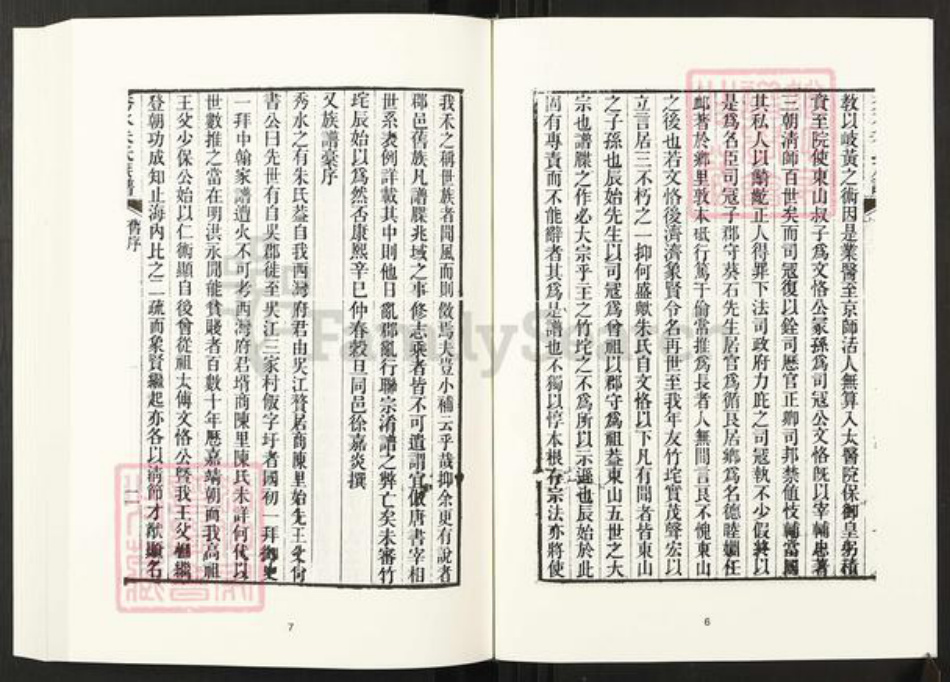 教以岐黃之術因是業醫至京師活人無算入太醫院保御皇躬積
資至院使東山叔子為文恪公冢孫為司寇公文恪既以宰輔忠著
三朝清師百世矣而司寇復以銓司歷官正卿司邦禁値忮輔當國
其私人以齮齕正人得罪下法司政府力庇之司寇執不少假將以
是為名臣司寇子郡守葵石先生居官為循良居鄉為名德睦婣任
卹著於鄉里敦本砥行篤于倫常推為長者人無間言良不愧東山
之後也若文恪後濟濟象賢令名再世至我年友竹垞實茂聲宏以
立言居三不朽之一抑何盛歟朱氏自文恪以下凡有聞者皆東山
之子孫也辰始先生以司寇為曾祖以郡守為祖葢東山五世之大
宗也譜牒之作必大宗乎主之竹垞之不為所以示遜也辰始於此
固有專責而不能辭者其為是譜也不獨以惇本根存宗法亦將使
我禾之稱世族者聞風而則傚焉夫豈小補云乎哉抑余更有說者
郡邑舊族凡譜牒兆域之事修志乘者皆不可遺謂宜倣唐書宰相
世系表例詳載其中則他日亂郡亂行聯宗淆譜之弊亡矣未審竹
垞辰始以為然否康熙辛巳仲春穀旦同邑徐嘉炎撰
又族譜稾序
秀水之有朱氏葢自我西灣府君由吳江贅居商陳里始先王父何
書公曰先世有自吳郡徙至吳江三家村飯字圩者國初一拜御史
一拜中翰家譜遭火不可考西灣府君壻商陳里陳氏未詳何代以
世數推之當在明洪永間能貧賤者百數十年歷嘉靖朝而我高祖
王父少保公始以仁術顯自後曾從祖太傅文恪公曁我王父
登朝功成知止海內比之二疏而象賢繼起亦各以清節才猷顯名
舊序
二
FamilySearch
7
6